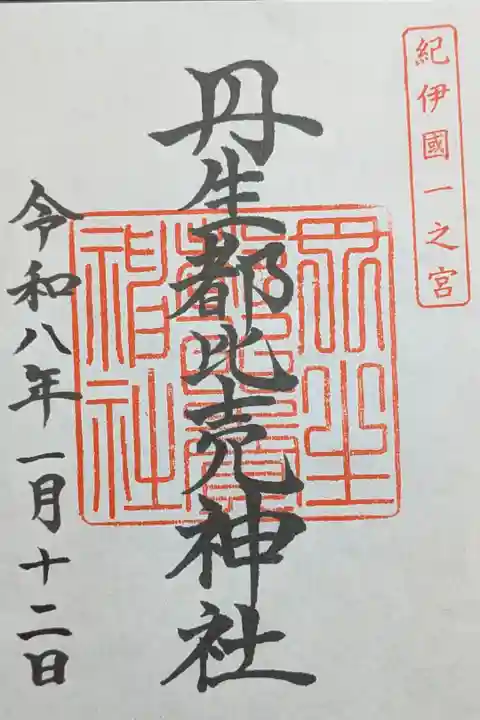 紀伊國一之宮
丹生都比売神社
丹生都比賣神社
令和八年一月十二日